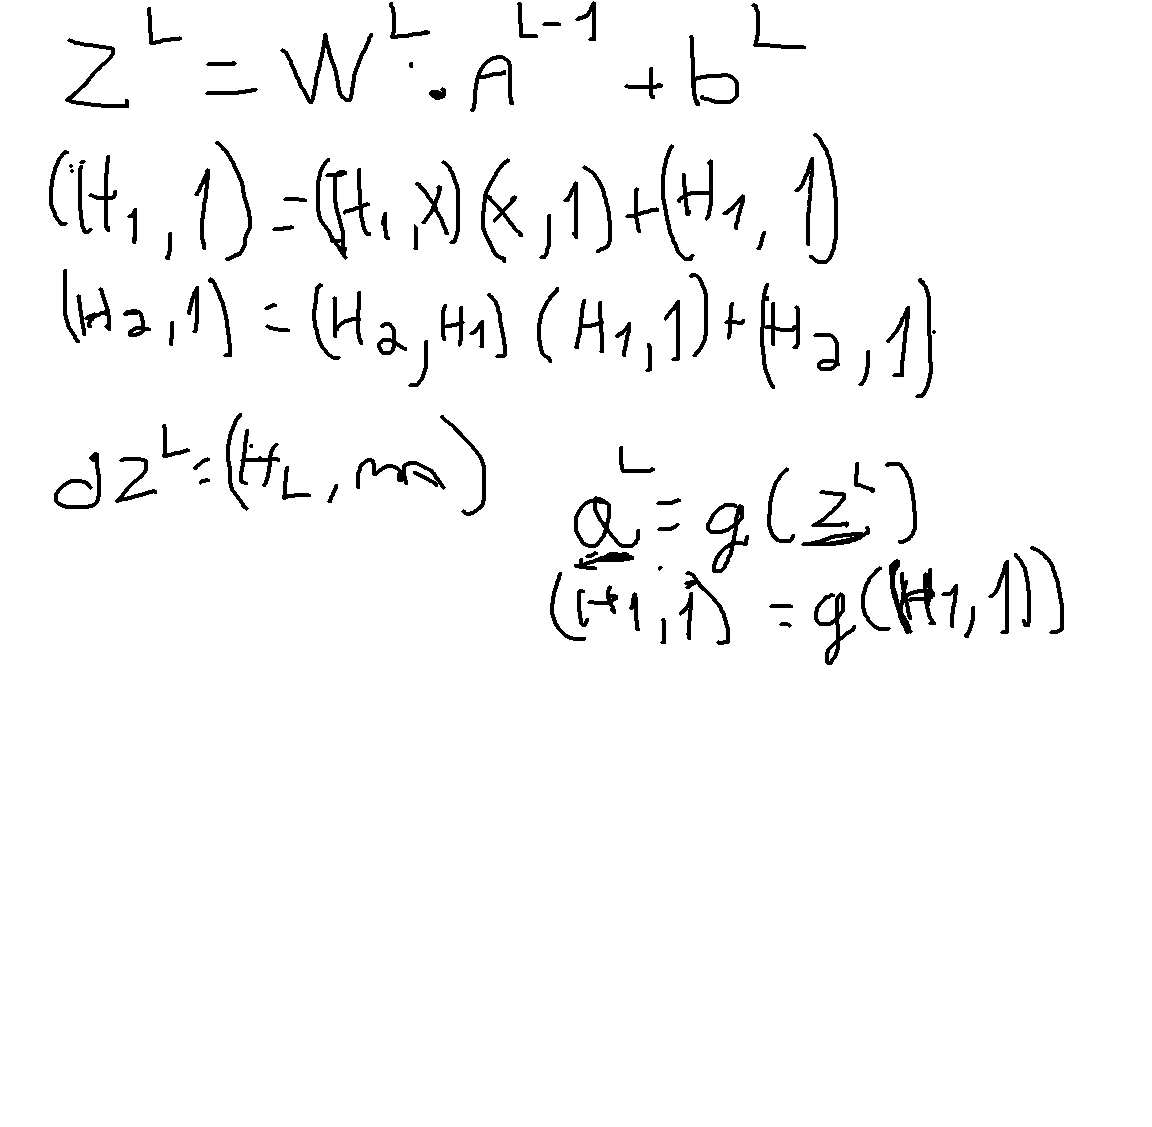 Z^L = W^L · A^{L-1} + b^L
(H_1, 1) = (H_1, X) (x, 1) + (H_1, 1)
(H_2, 1) = (H_2, H_1) (H_1, 1) + (H_2, 1)
dz^L = (H_L, m)
a^L = g(z^L)
(H_1, 1) = g((H_1, 1))